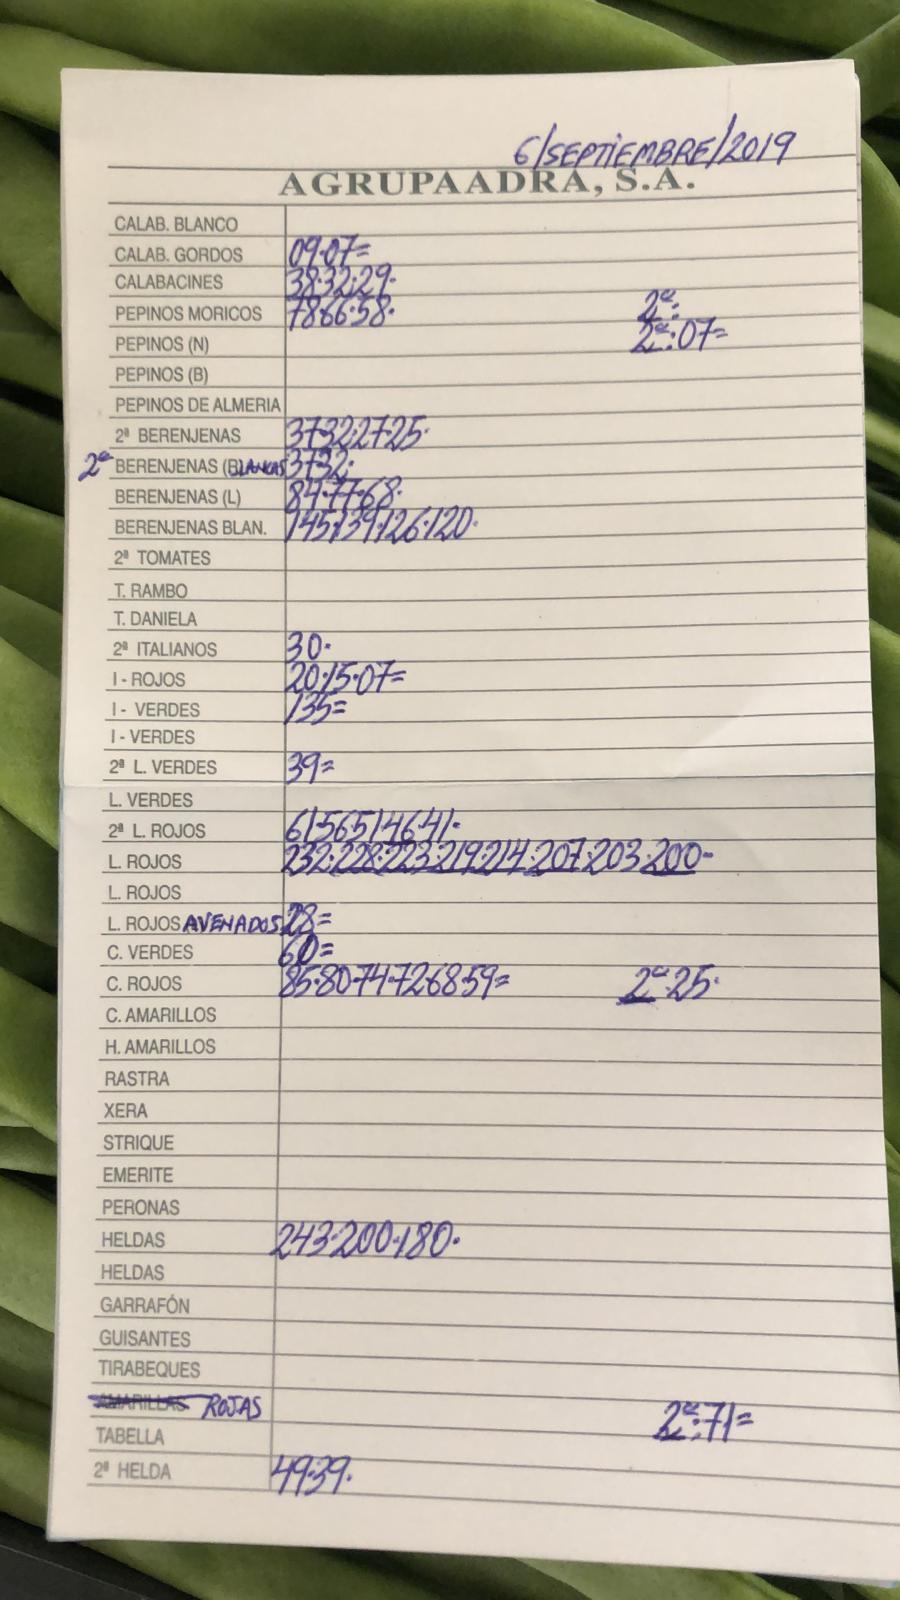 6/SEPTIEMBRE/2019
AGRUPAADRA, S.A.
CALAB. BLANCO
CALAB. GORDOS 09·07=
CALABACINES 38·32·29·
PEPINOS MORICOS 78·66·58· 2ª:
PEPINOS (N) 2ª:07=
PEPINOS (B)
PEPINOS DE ALMERIA
2ª BERENJENAS 37·32·27·25·
2ª BERENJENAS (BLANCAS 37·32·
BERENJENAS (L) 84·77·68·
BERENJENAS BLAN. 145·139·126·120·
2ª TOMATES
T. RAMBO
T. DANIELA
2ª ITALIANOS 30·
I - ROJOS 20·15·07=
I - VERDES 135=
I - VERDES
2ª L. VERDES 39=
L. VERDES
2ª L. ROJOS 61·56·51·46·41·
L. ROJOS 232·228·223·219·214·207·203·200-
L. ROJOS
L. ROJOS AVENADOS 28=
C. VERDES 60=
C. ROJOS 85·80·74·72·68·59= 2ª·25·
C. AMARILLOS
H. AMARILLOS
RASTRA
XERA
STRIQUE
EMERITE
PERONAS
HELDAS 243·200·180·
HELDAS
GARRAFÓN
GUISANTES
TIRABEQUES
AMARILLAS ROJAS 2ª:71=
TABELLA
2ª HELDA 49·39·